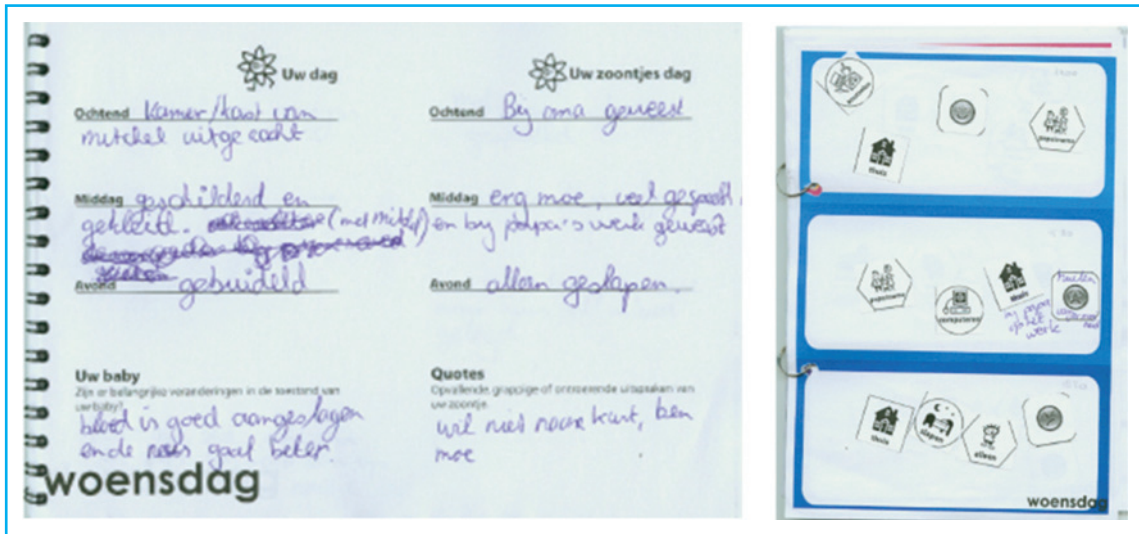 Uw dag
Ochtend Kamer/kast van
mitchel uitgezocht
Middag geschilderd en
gekleid. (met mitchel)
Avond gebuideld
Uw baby
Zijn er belangrijke veranderingen in de toestand van
uw baby?
bloed is goed aangeslagen
en de neus gaat beter.
woensdag
Uw zoontjes dag
Ochtend Bij oma geweest
Middag erg moe, veel gespeeld
en bij papa's werk geweest
Avond alleen geslapen.
Quotes
Opvallende grappige of ontroerende uitspraken van
uw zoontje.
wil niet naar kart, ben
moe
thuis
papa/mama
papa/mama
computeren
thuis
bij papa
op het
werk
thuis
slapen
alleen
woensdag